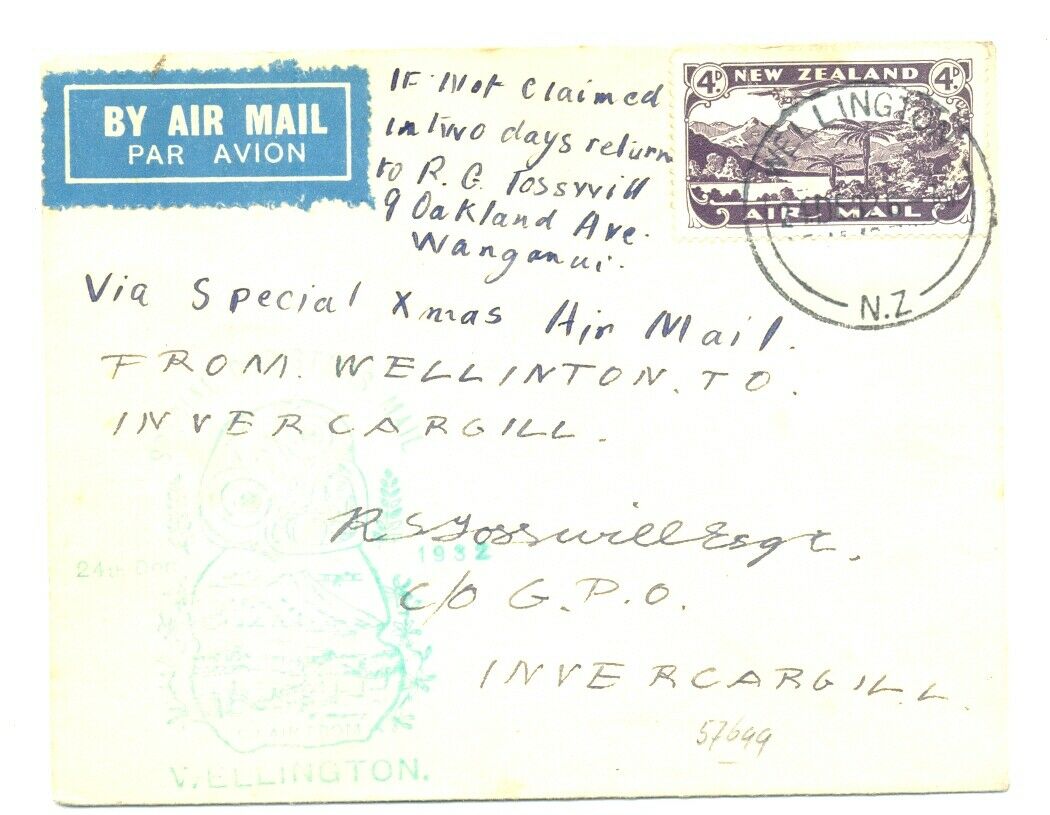 BY AIR MAIL
PAR AVION
If Not Claimed
in Two days return
to R. G. Tosswill
9 Oakland Ave.
Wanganui.
4D. NEW ZEALAND 4D.
AIR MAIL
WELLINGTON
N.Z
Via Special Xmas Air Mail.
FROM. WELLINTON. TO.
INVERCARGILL.
R S Tosswill Esqr.
24th Dec 1932
C/O G.P.O.
INVERCARGILL
57699
AIR FROM
WELLINGTON.